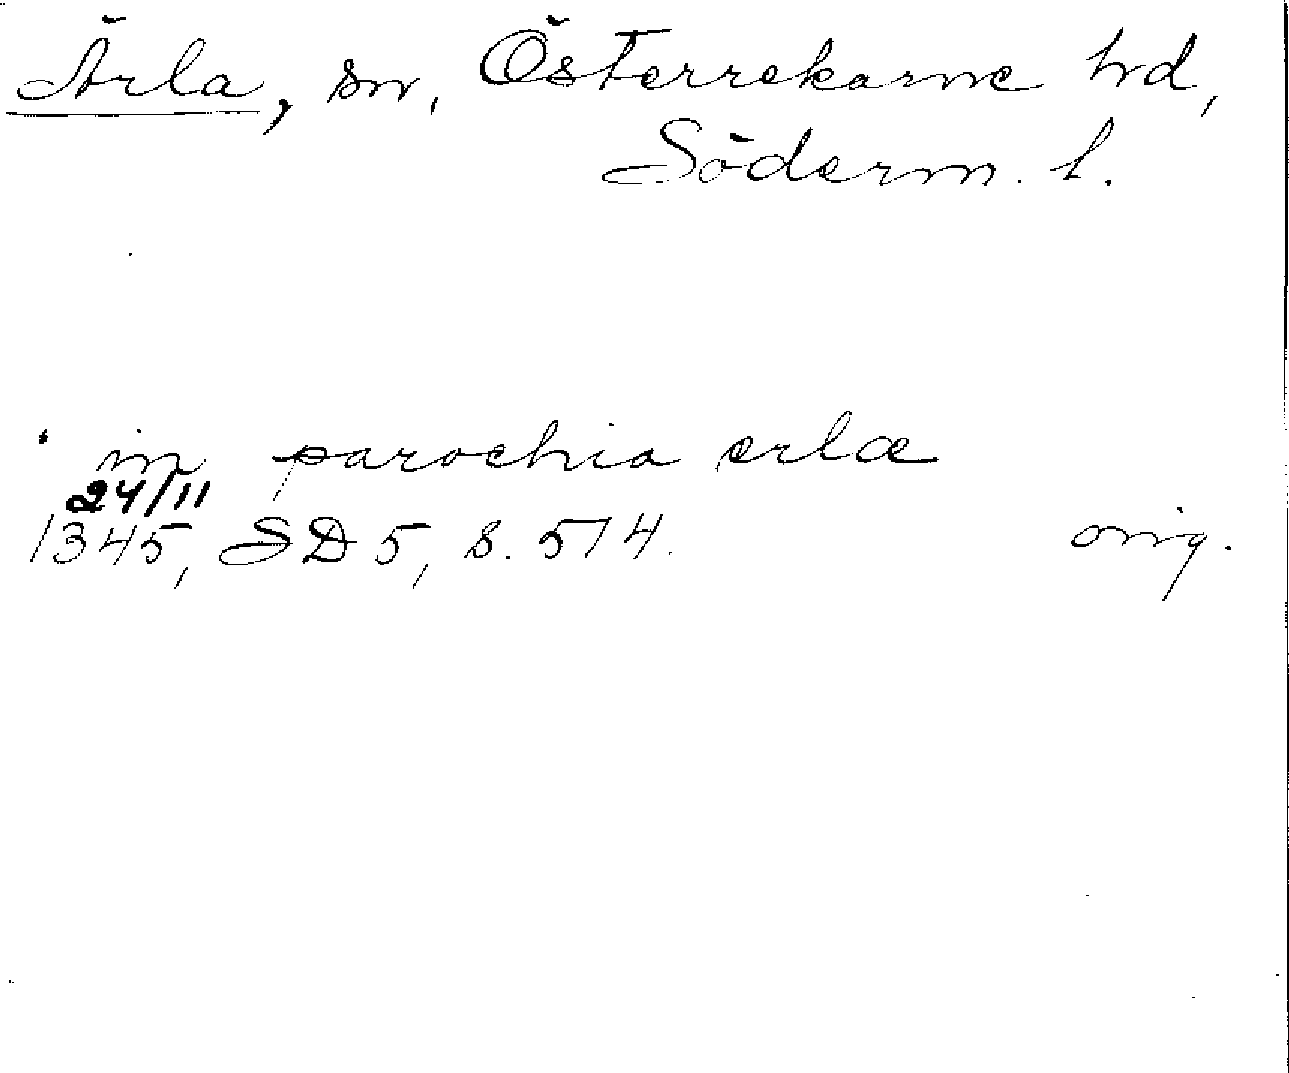 Ärla, sn, Österrekarne hd,
Söderm. l.
in parochia erlæ
24/11
1345, SD 5, s. 514.
orig.